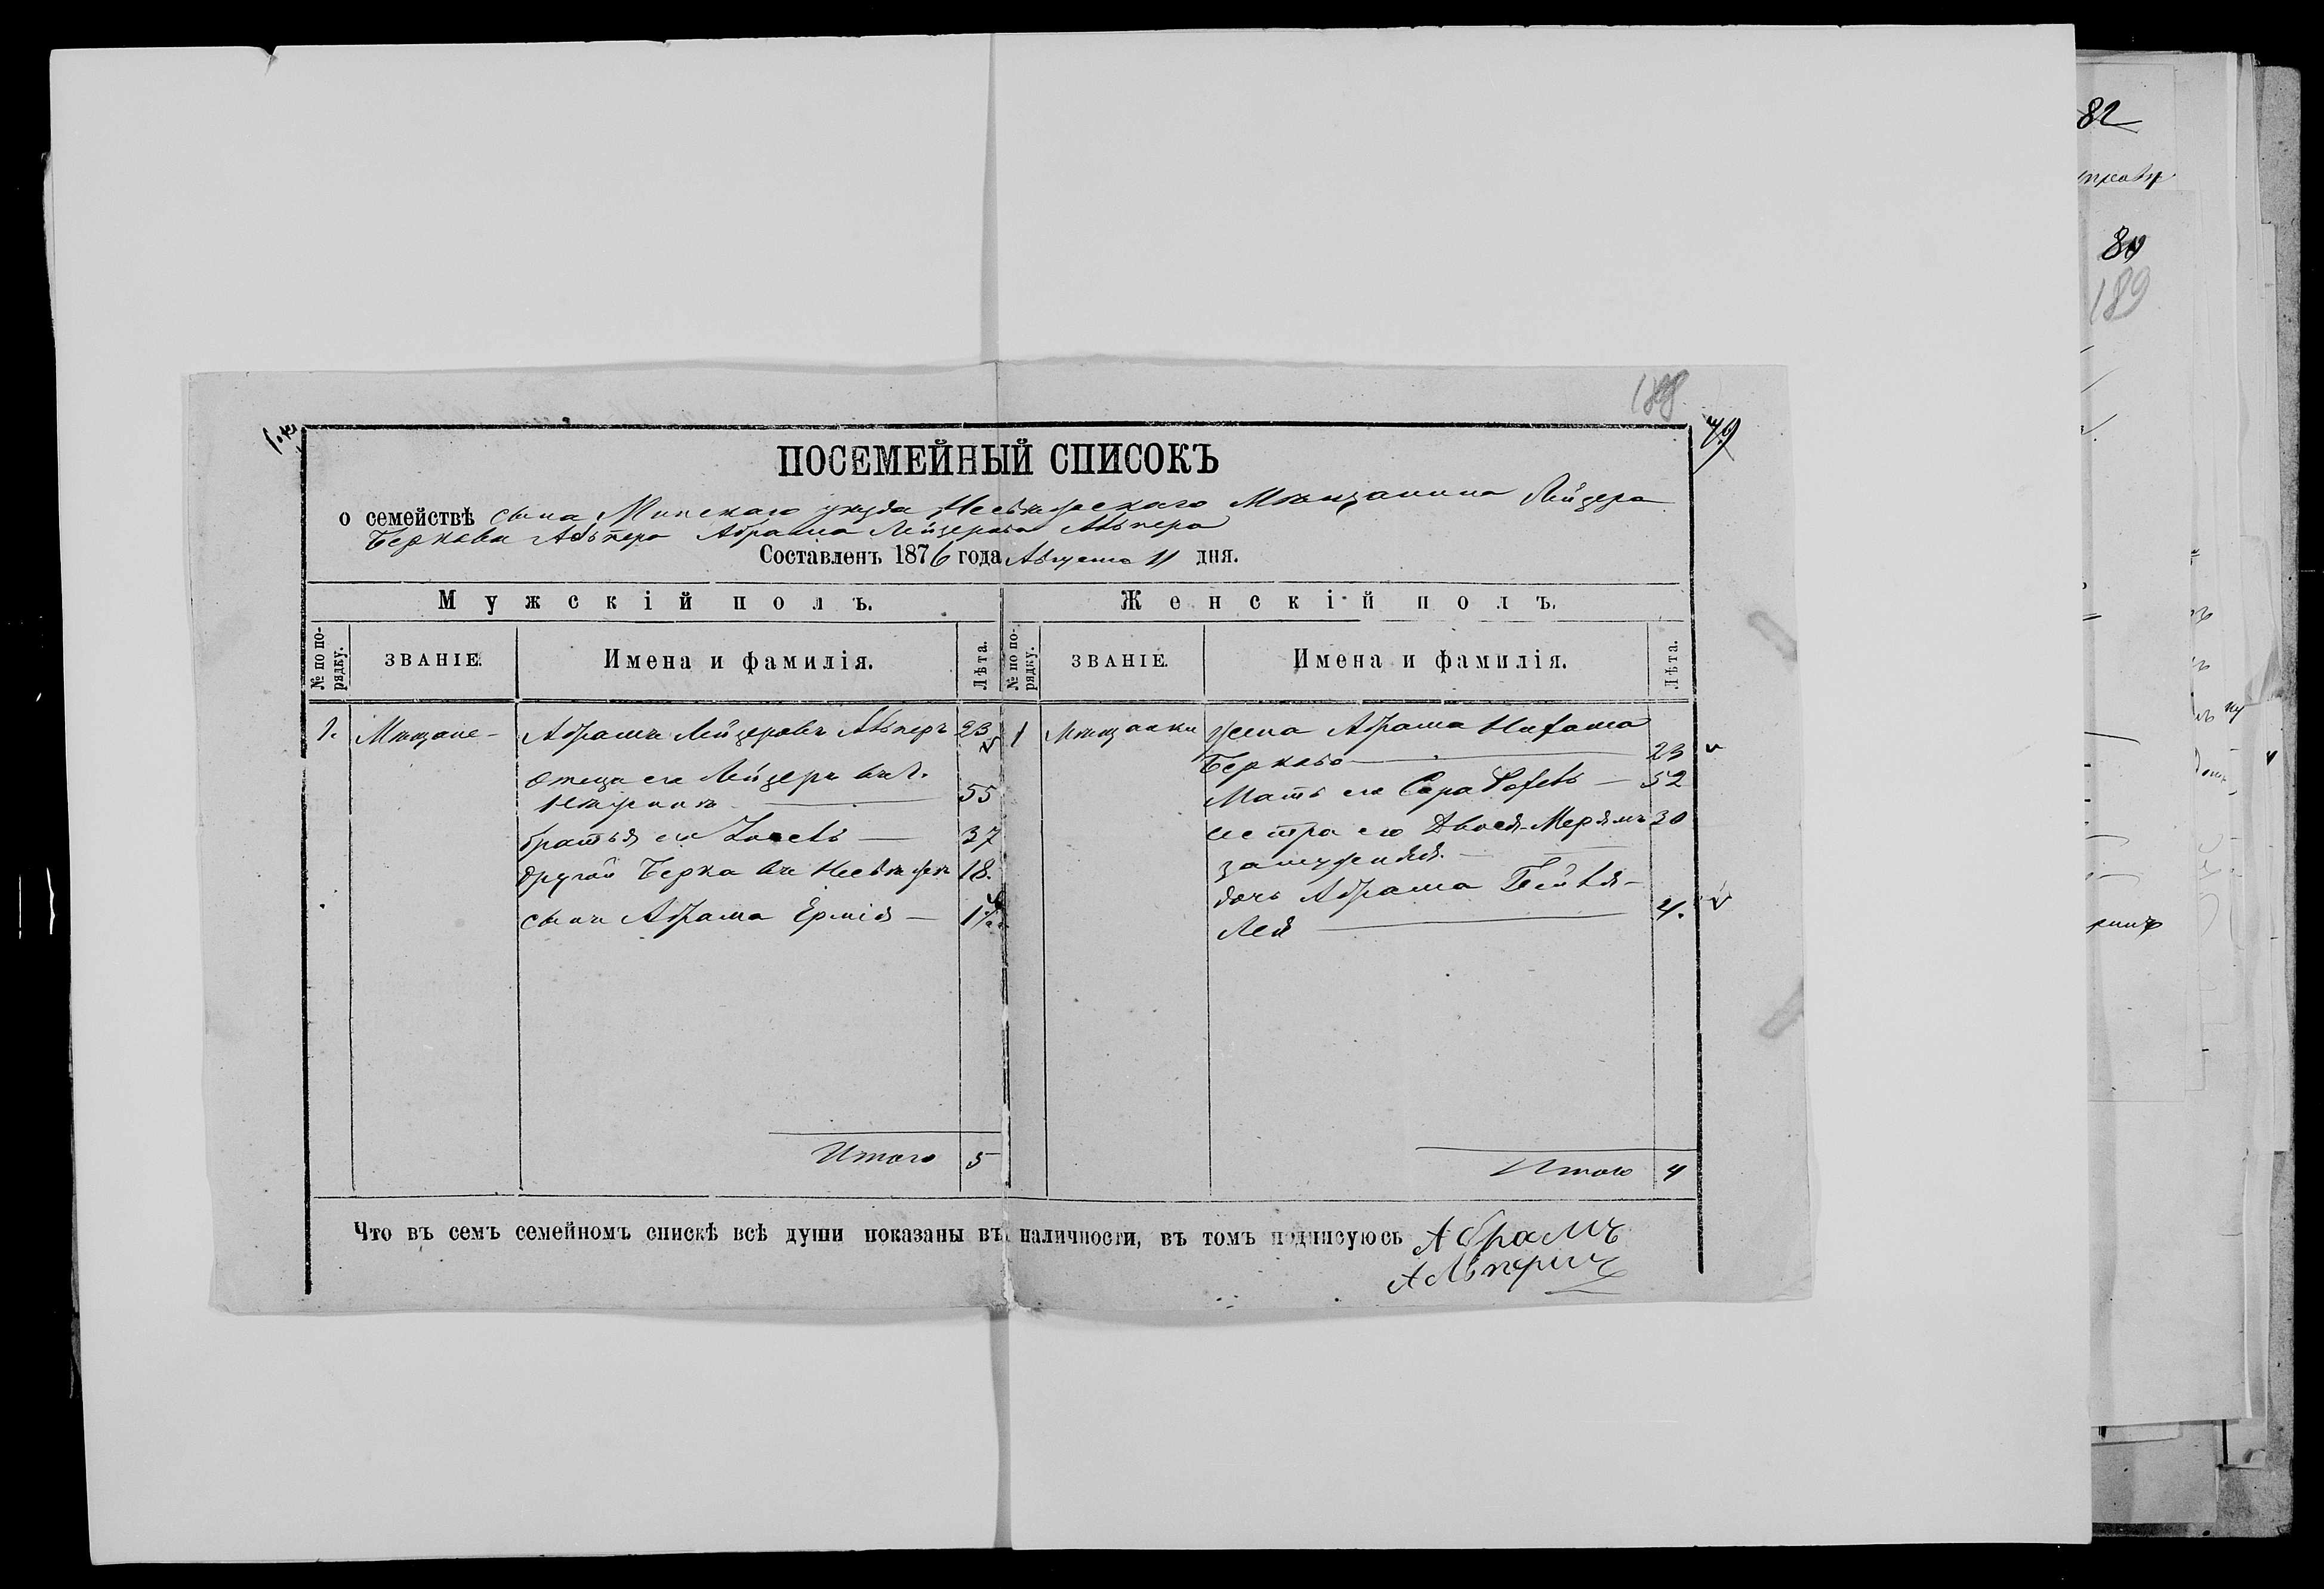 188
79
ПОСЕМЕЙНЫЙ СПИСОКЪ
о семействѣ сына Минскаго уѣзда Несвижскаго Мѣщанина Лейзера
Берковa Альпера Абрама Лейзерова Альпера
Составленъ 1876 года Августа 11 дня.
Мужскій полъ. Женскій полъ.
№ по порядку. ЗВАНІЕ. Имена и фамилія. Лѣта. № по порядку. ЗВАНІЕ. Имена и фамилія. Лѣта.
1. Мѣщане - Абрамъ Лейзеровъ Альперъ 23 1 Мѣщанки жена Абрама
Берково 23
отецъ его Лейзеръ въ г.
55
Мать его Сора 52
братья его 37
сестра его Двося-Мерямъ 30
замужняя.
другой Берка въ Несвижѣ 18.
дочь Абрама Бейля-
Лея 4.
сынъ Абрама Ермія - 1
Итого 5 Итого 4
Что въ семъ семейномъ спискѣ всѣ души показаны въ наличности, въ томъ подписуюсь Абрамъ
Альперин
82
80
189